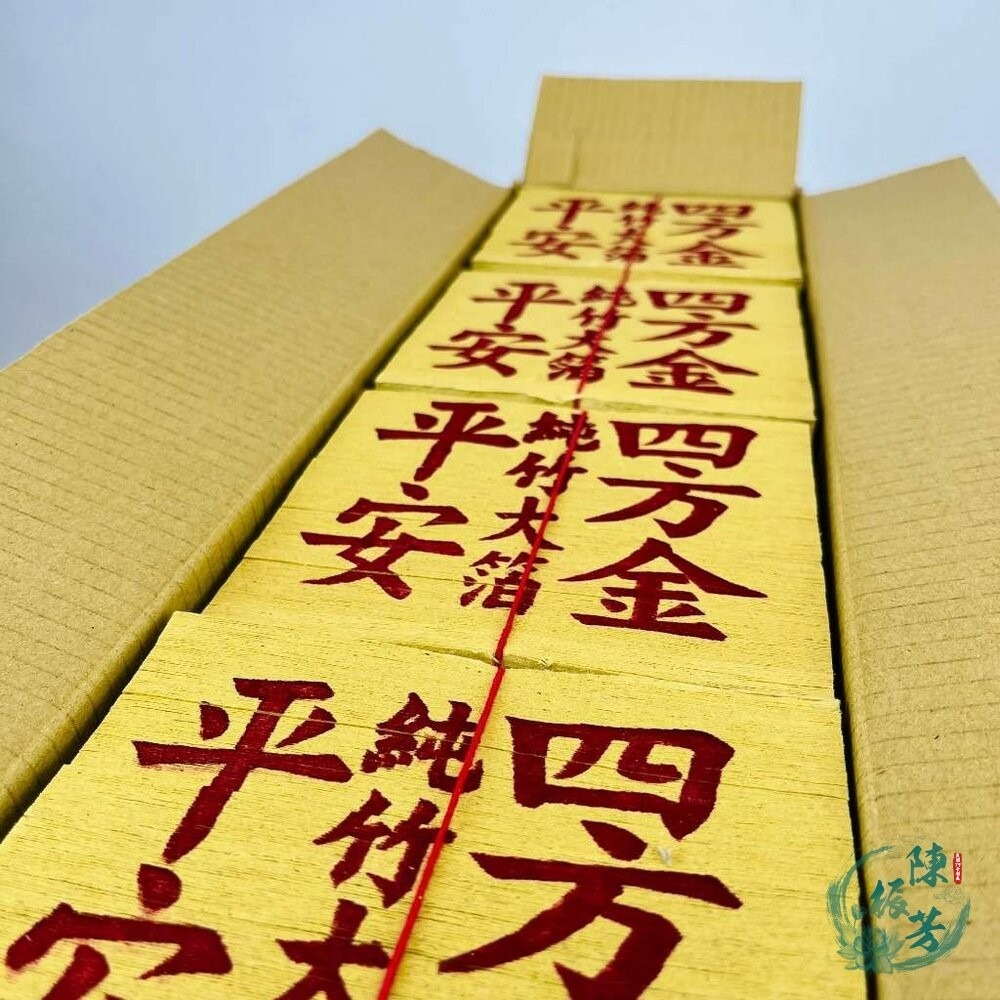 四方金
純竹大箔
平安
四方金
純竹大箔
平安
四方金
純竹大箔
平安
四方
純竹大
平安
陳振芳